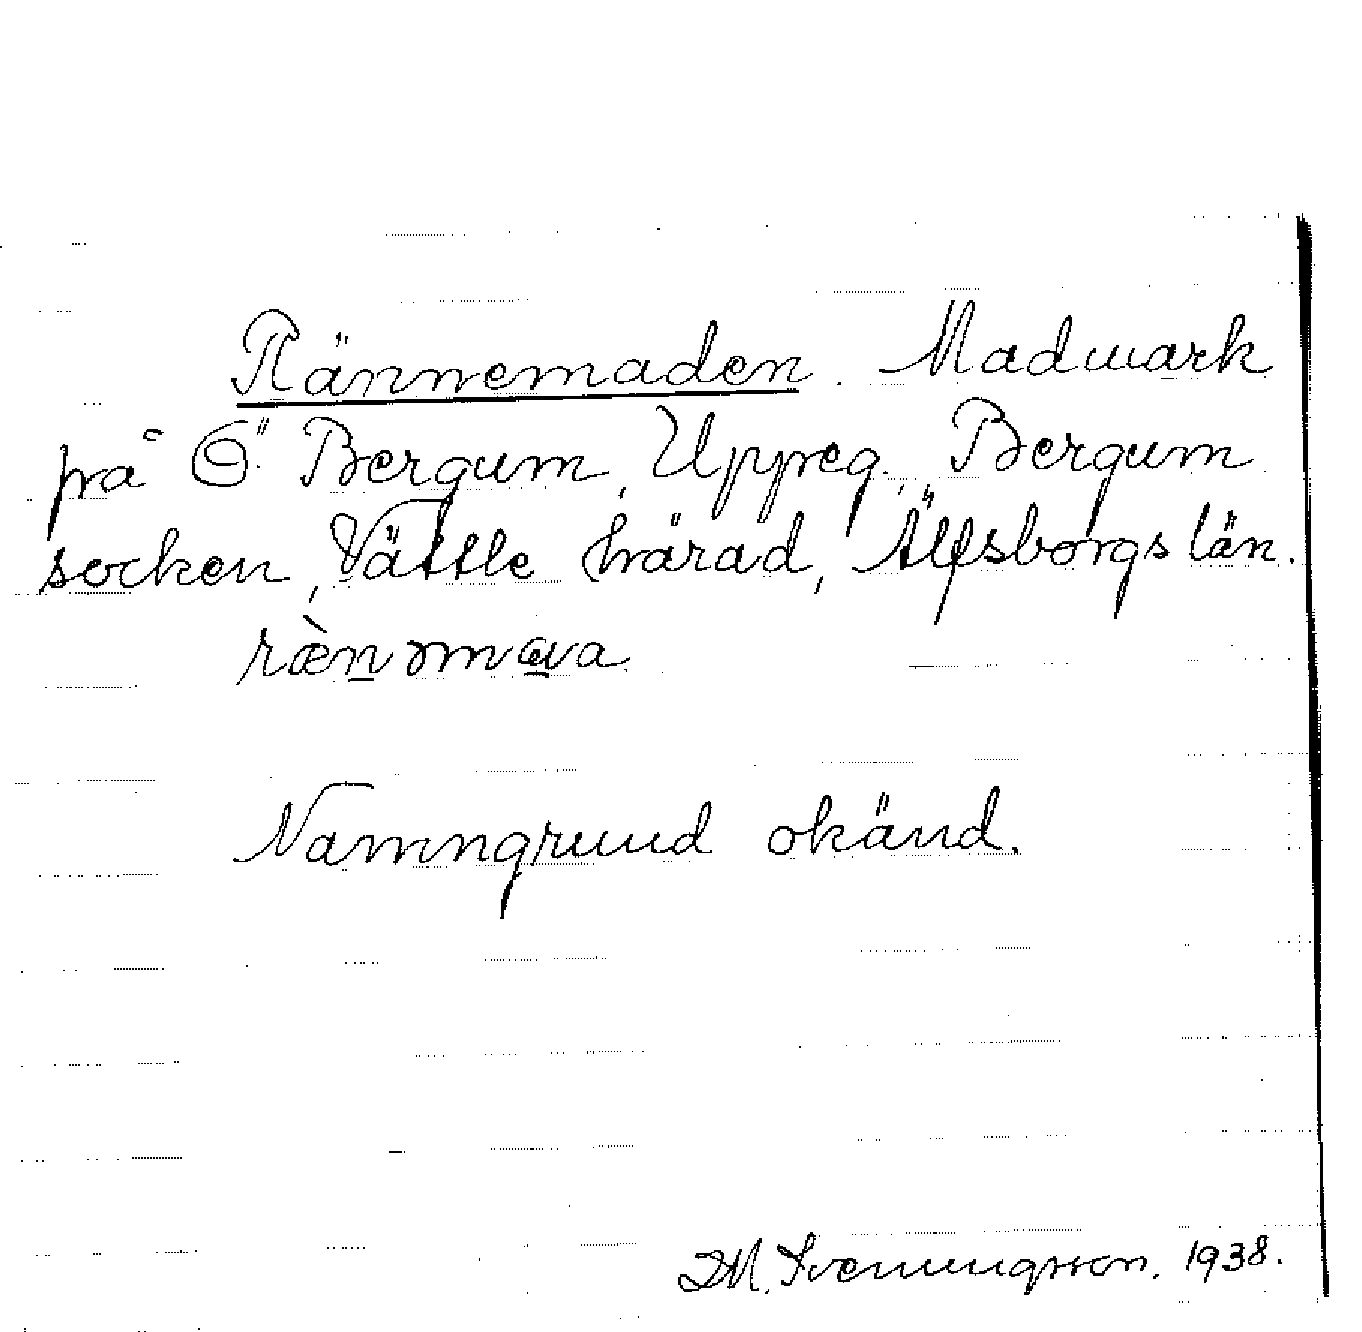 Rännemaden. Madmark
på Ö. Bergum, Uppeg., Bergum
socken, Vättle härad, Älfsborgs län.
Namngrund okänd.
M. Svenungsson. 1938.